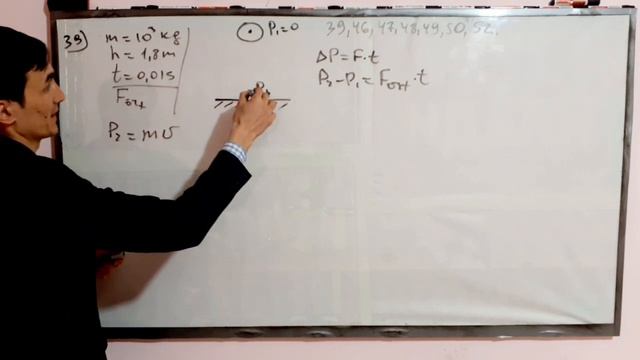 39)
m = 10³ kg
h = 1,8 m
t = 0,01 s
F_ort
P₂ = mv
P₁ = 0
39, 46, 47, 48, 49, 50, 52.
ΔP = F·t
P₂ - P₁ = F_ort · t